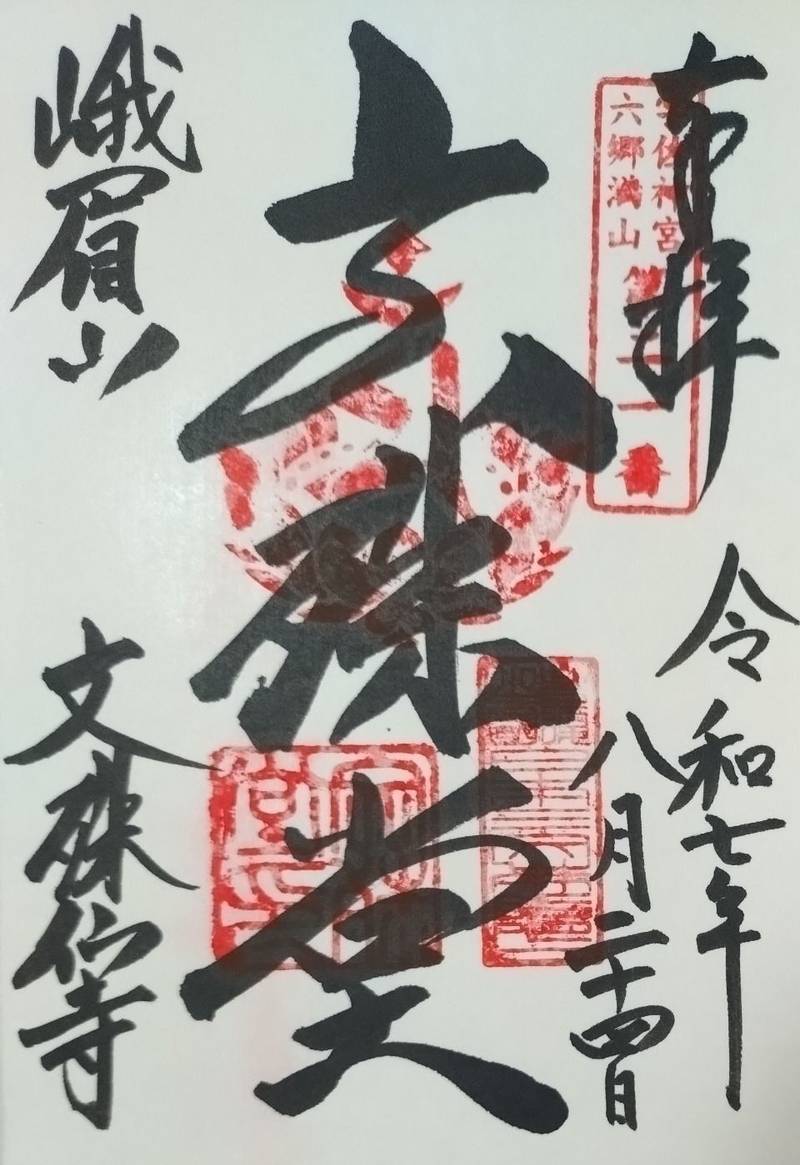 奉拝
宇佐神宮
六郷満山
番
令和七年
八月二十四日
文殊堂
峨眉山
文殊仙寺